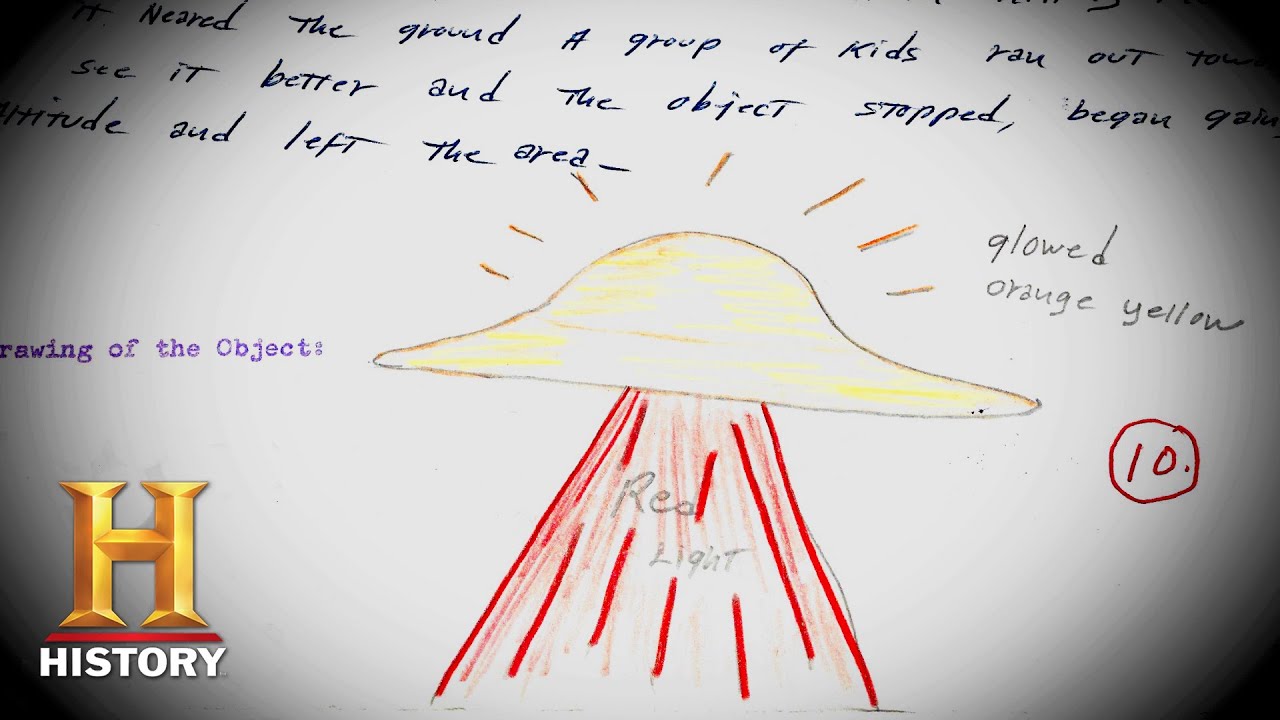 it Neared the ground A group of Kids ran out
see it better and the object stopped, began gain
Altitude and left the area—
glowed
orange yellow
rawing of the Object:
10.
Red
Light
HISTORY